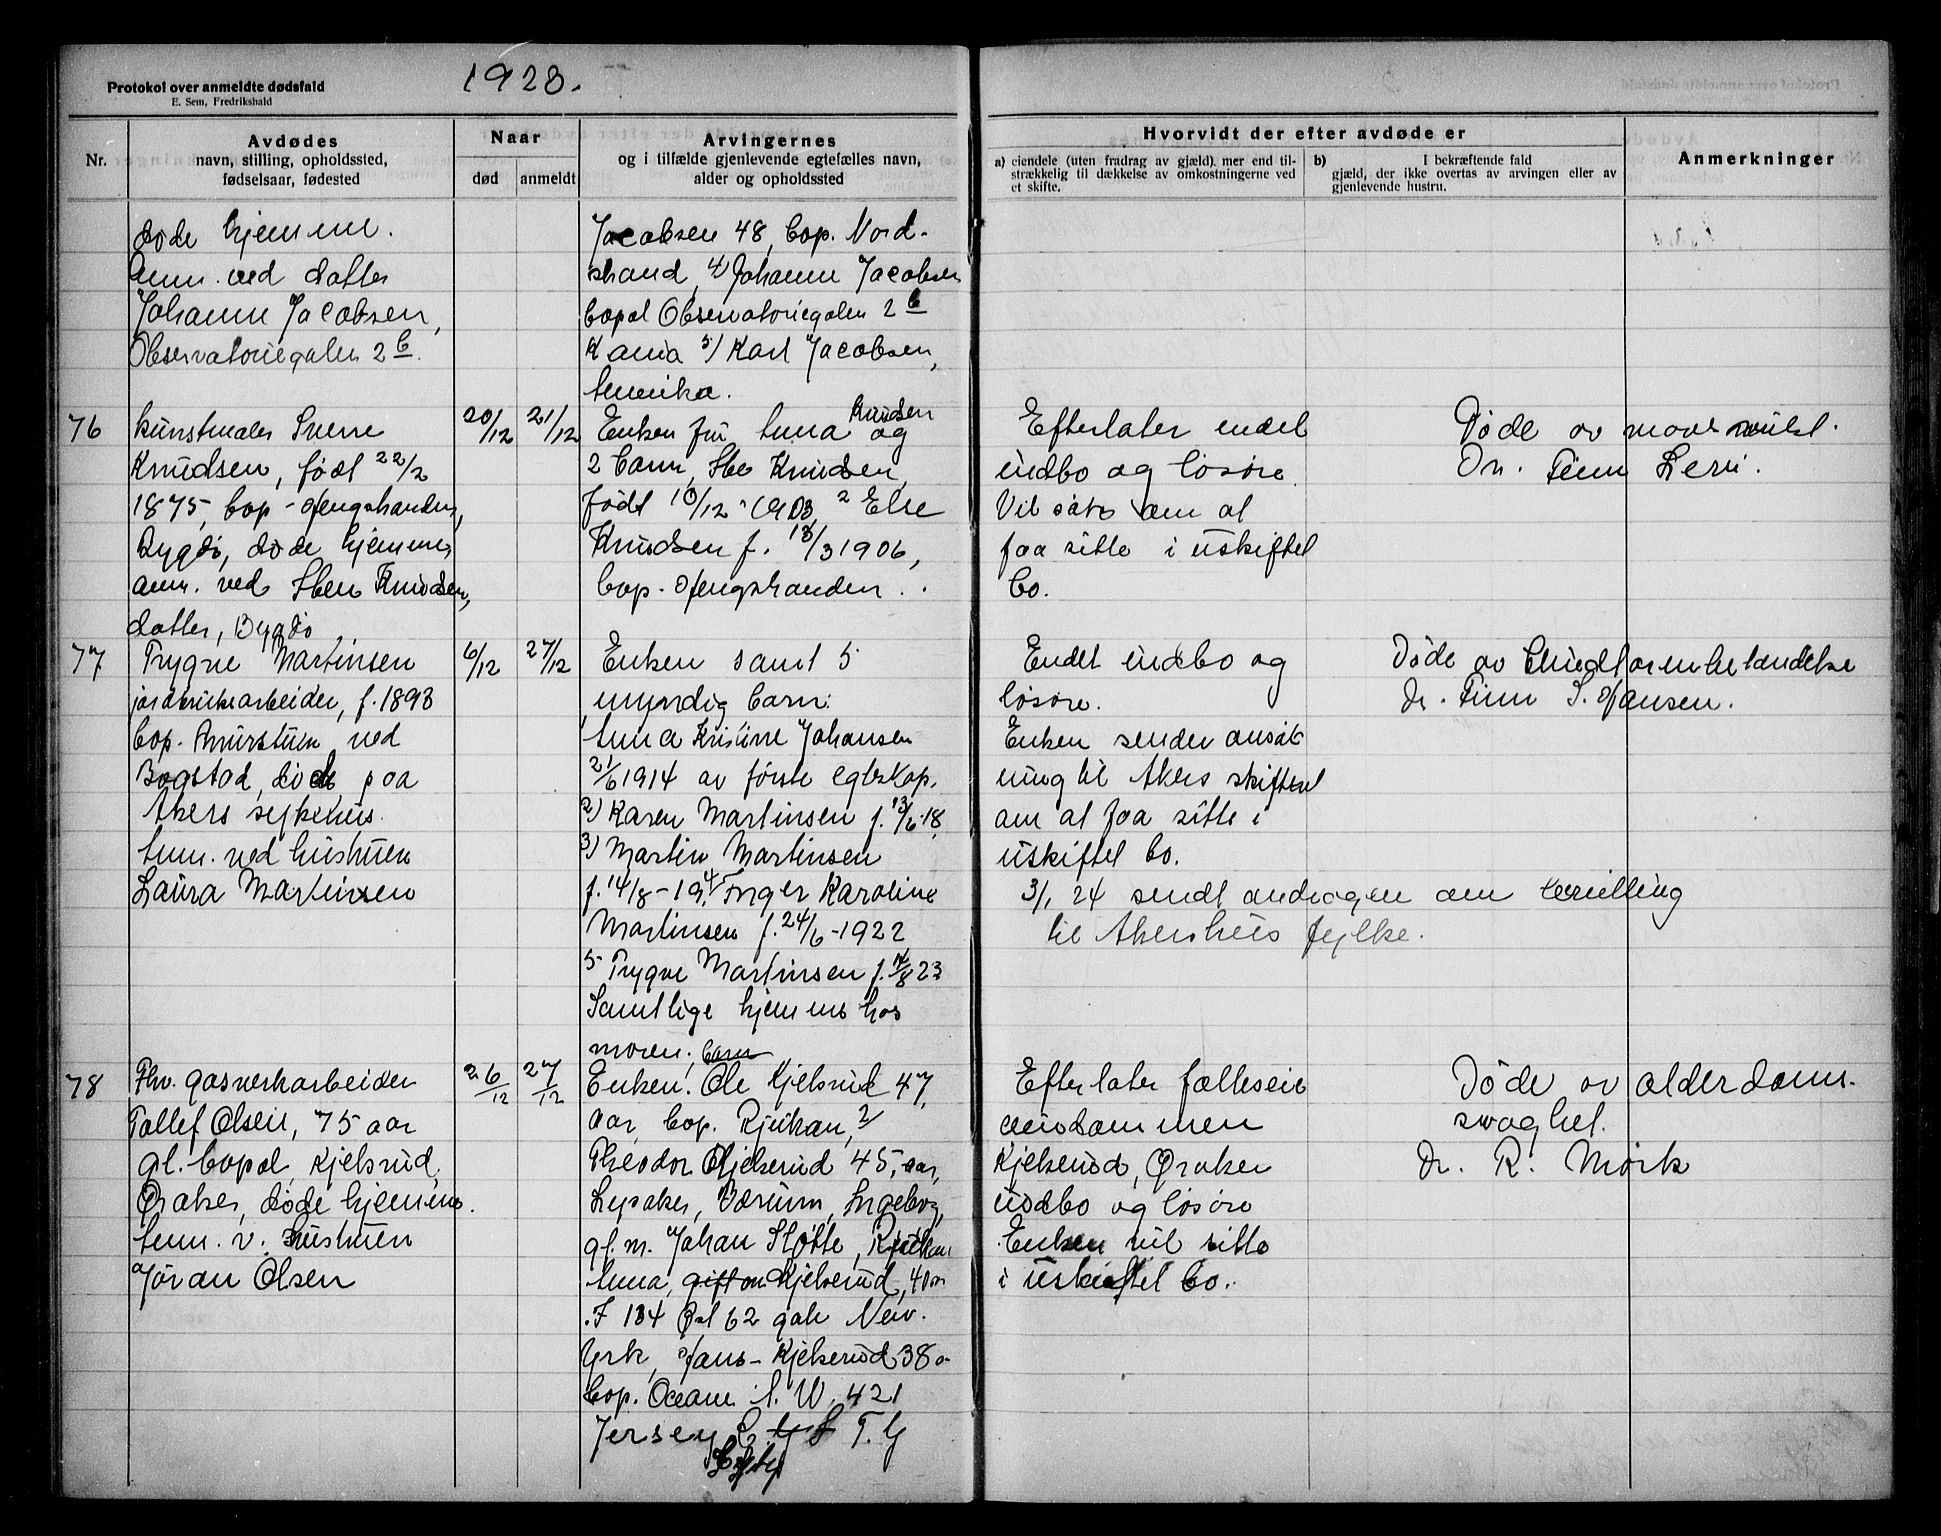 Protokol over anmeldte dødsfald
E. Sem, Fredrikshald
1923.
Nr.
Avdødes
navn, stilling, opholdssted,
fødselsaar, fødested
Naar
død
anmeldt
Arvingernes
og i tilfælde gjenlevende egtefælles navn,
alder og opholdssted
Hvorvidt der efter avdøde er
a) eiendele (uten fradrag av gjæld) mer end til-
strækkelig til dækkelse av omkostningerne ved
et skifte.
b) I bekræftende fald
gjæld, der ikke overtas av arvingen eller av
gjenlevende hustru.
Anmerkninger
døde hjemme.
Anm. ved datter
Johanne Jacobsen,
Observatoriegaten 2 b.
Jacobsen 48, bop. Nord-
strand, 4) Johanne Jacobsen
bopæl Observatoriegaten 2 b
Kania 5) Karl Jacobsen,
Amerika.
76
Kunstmaler Sverre
Knudsen, født 22/2
1875, bop. Hengshanden,
Bygdø, døde hjemme
anm. ved Knudsen,
datter, Bygdø
20/12
21/12
Enken fru Anna Knudsen og
2 barn, Knudsen,
født 10/12 - 1903 2 Else
Knudsen f. 13/3 1906,
bop. Hengshanden.
Efterlater endel
indbo og løsøre.
Vil søke om at
faa sitte i uskiftet
bo.
Døde av
Dr. Finn
77
Trygve Martinsen
jordbruksarbeider, f. 1893
bop. ved
Bogstad, døde paa
Akers sykehus.
Anm. ved hustruen
Laura Martinsen
6/12
27/12
Enken samt 5
umyndig barn:
Anna Kristine Johansen
21/6 1914 av første egteskap.
2) Karen Martinsen f. 13/6-18,
3) Martin Martinsen
f. 14/8 - 19, 4) Inger Karoline
Martinsen f. 24/6 - 1922
5 Trygve Martinsen f. 14/8 23
Samtlige hjemme hos
moren.
Endel indbo og
løsøre.
Enken sender ansøk
ning til Akers skifteret
om at faa sitte i
uskiftet bo.
3/1 24 sendt andragen om bevilling
til Akershus fylke.
Døde av Blindtarmbetændelse
Dr. Finn S. Hansen.
78
Fhv. gasverkarbeider
Tollef Olsen, 75 aar
gl. bopæl Kjelsrud,
Øraker, døde hjemme.
Anm. v. hustruen
Jøran Olsen
26/12
27/12
Enken. barn Ole Kjelsrud 47,
aar, bop. Rjukan, 2/
Theodor Kjelserud 45, aar,
Lysaker, Bærum, Ingeborg,
gf. m. Johan Støtte, Rjukan
Anna, gift Kjelserud, 40 aar
.F 134 Øst 62 gate New.
York, Hans - Kjelserud 38 a-
bop. Ocean A. W. 421
Jersey T. G
Efterlater fælleseie
eiendommen
Kjelserud, Øraker
indbo og løsøre
Enken vil sitte
i uskiftet bo.
Døde av alderdoms-
svaghet.
Dr. R. Mørk